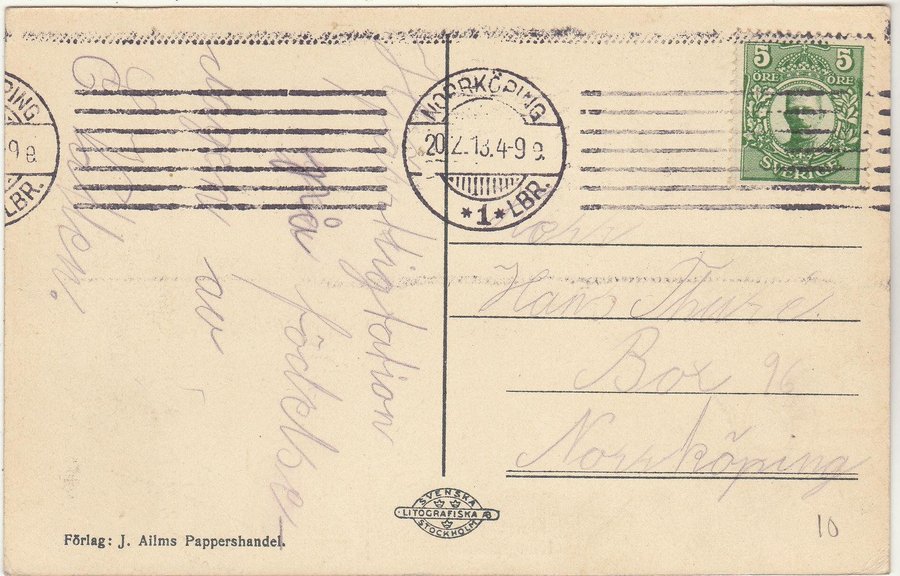 Gratulation
på födelse-
dagen av
NORRKÖPING
20.2.13.4-9 e.
*1* LBR.
PING
-9 e.
LBR.
5 5
ÖRE ÖRE
SVERIGE
Herr
Hans Thure
Box 96
Norrköping
SVENSKA
LITOGRAFISKA AB
STOCKHOLM
Förlag: J. Ailms Pappershandel.
10